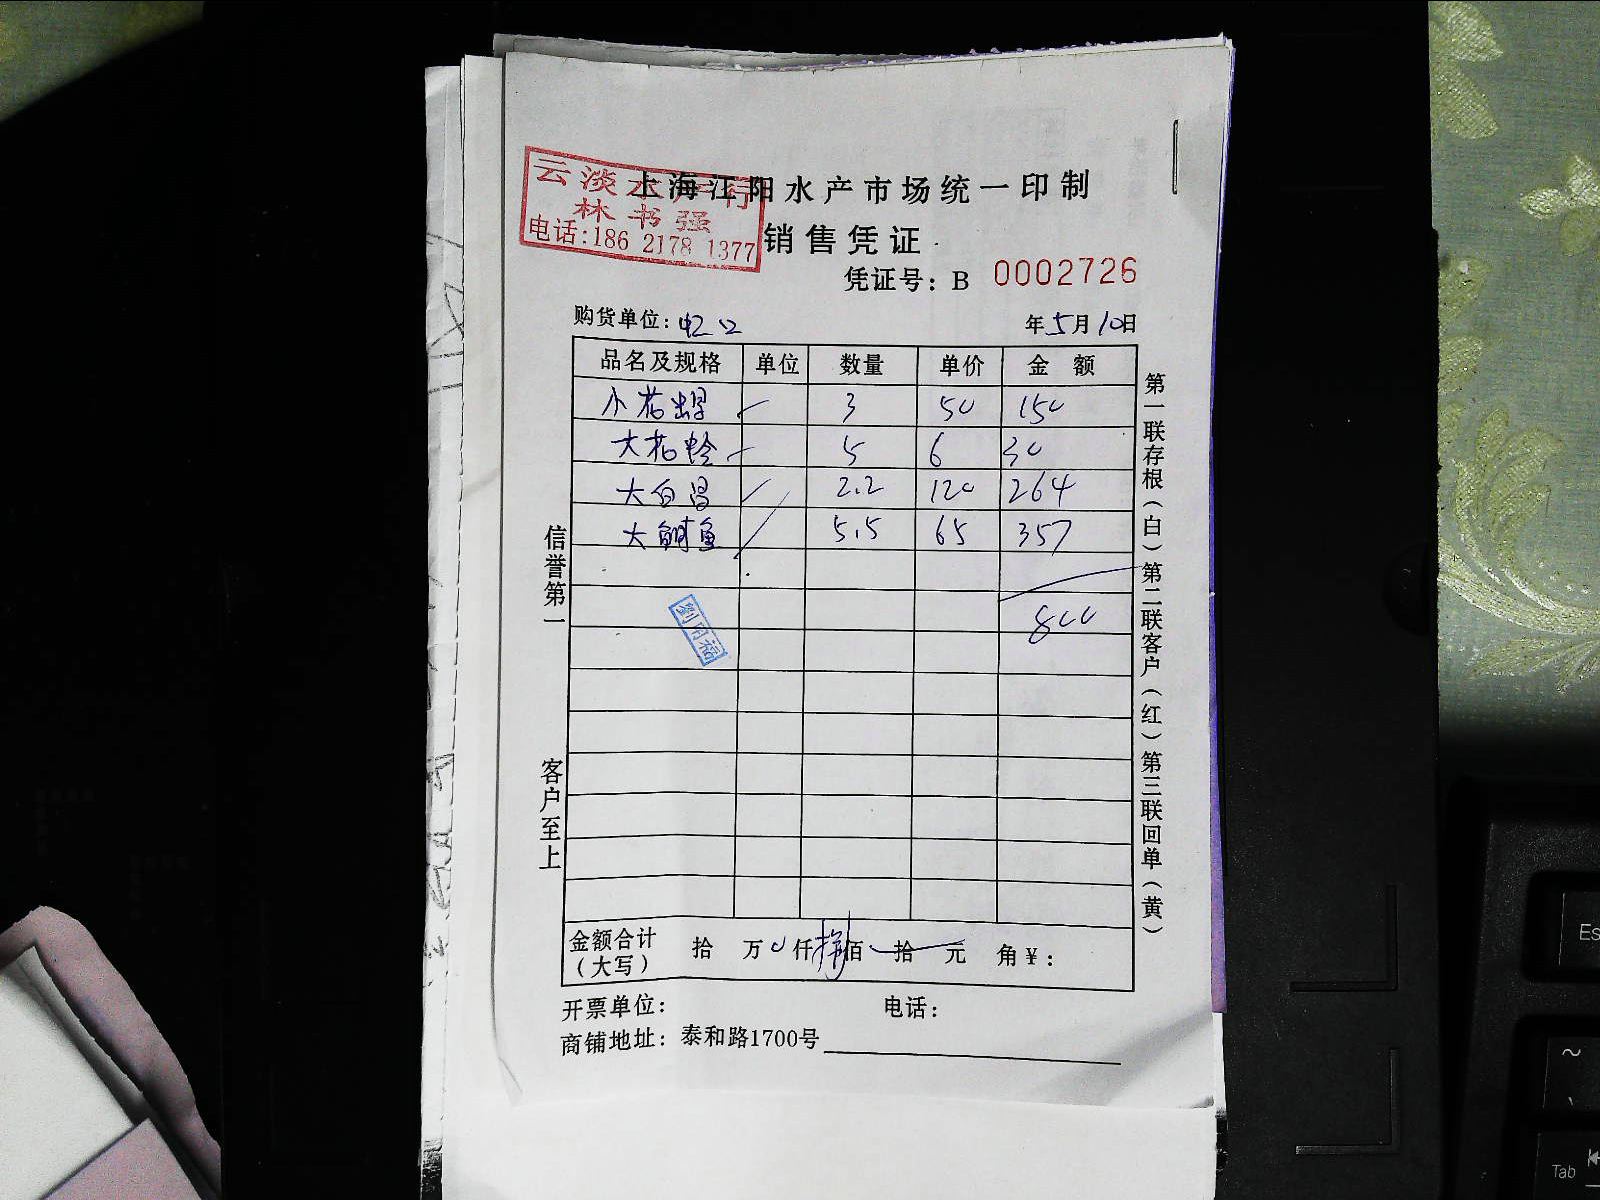 上海江阳水产市场统一印制
云淡水产行
林书强
电话:186 2178 1377
销售凭证
凭证号: B 0002726
购货单位: 虹口 年5月10日
品名及规格 单位 数量 单价 金额
小花 3 50 150
大花蛤 5 6 30
大白昌 2.2 120 264
大鲥鱼 5.5 65 357
800
劉用福
信誉第一
客户至上
第一联存根(白)第二联客户(红)第三联回单(黄)
金额合计(大写) 拾 万0仟捌佰 拾 元 角¥:
开票单位: 电话:
商铺地址: 泰和路1700号
Es
~
Tab